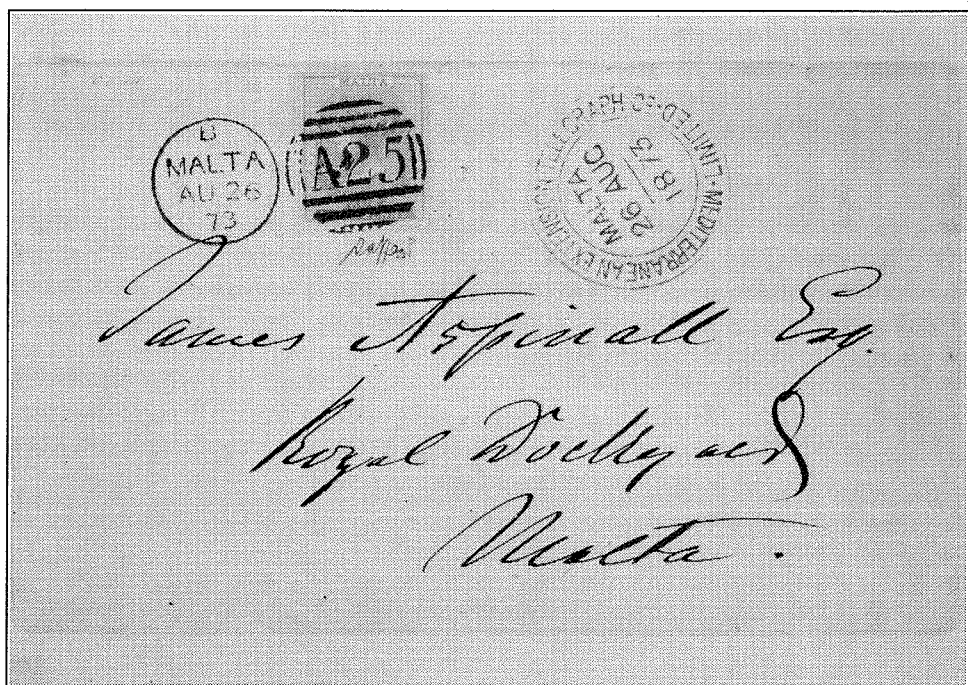 B
MALTA
AU 26
73
MALTA
A25
MEDITERRANEAN EXTENSION TELEGRAPH Co. LIMITED
MALTA
26 AUG
18 73
James Aspinall Esq.
Royal Dockyard
Malta.